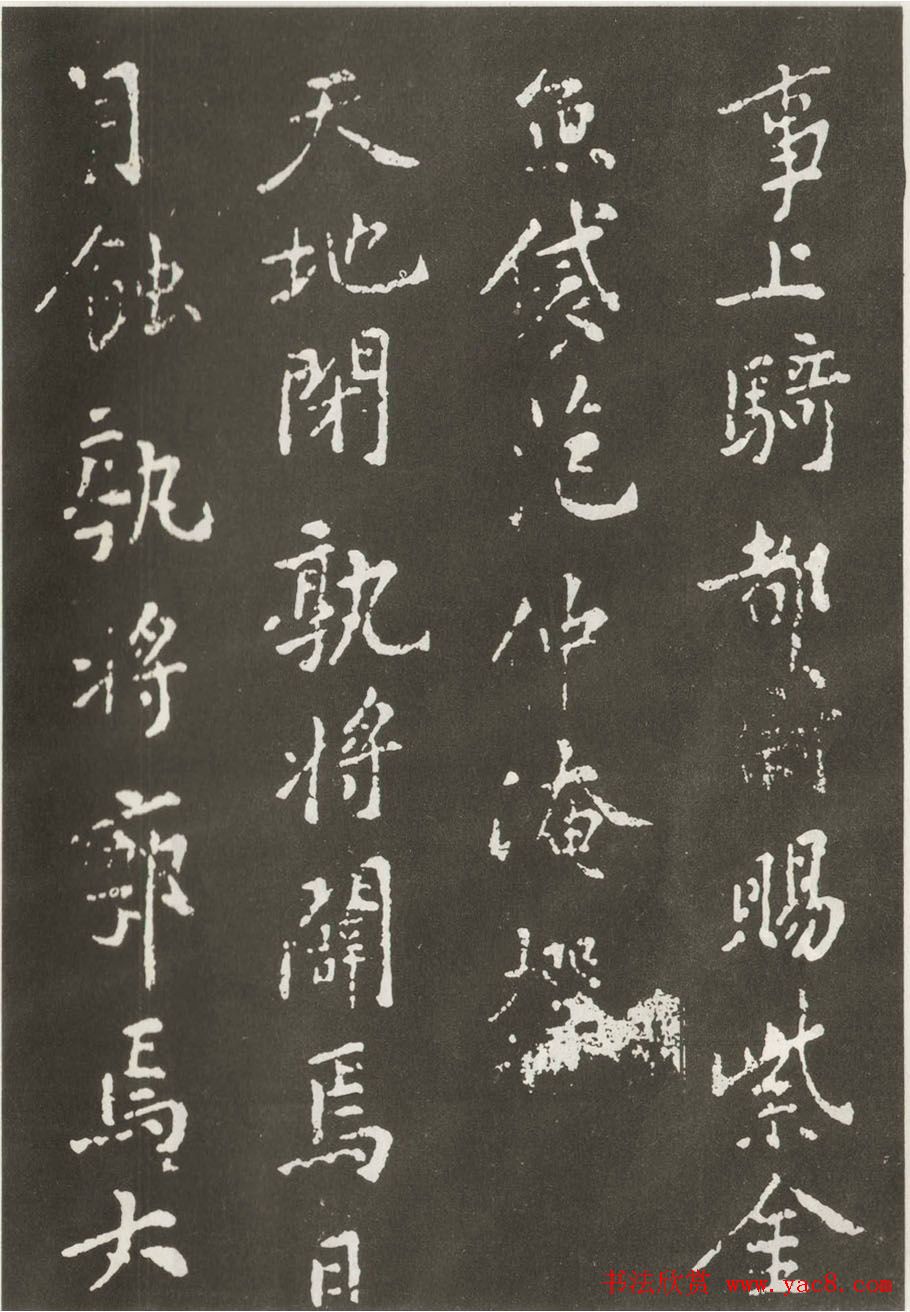 事上騎都賜紫金
魚袋范仲淹撰
天地閉孰將闢焉日
月蝕孰將廓焉大
书法欣赏 www.yac8.com